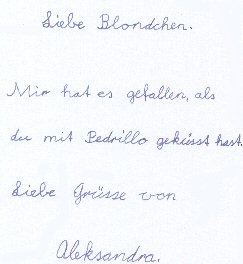 Liebe Blondchen.
Mir hat es gefallen, als
du mit Pedrillo geküsst hast.
Liebe Grüsse von
Aleksandra.